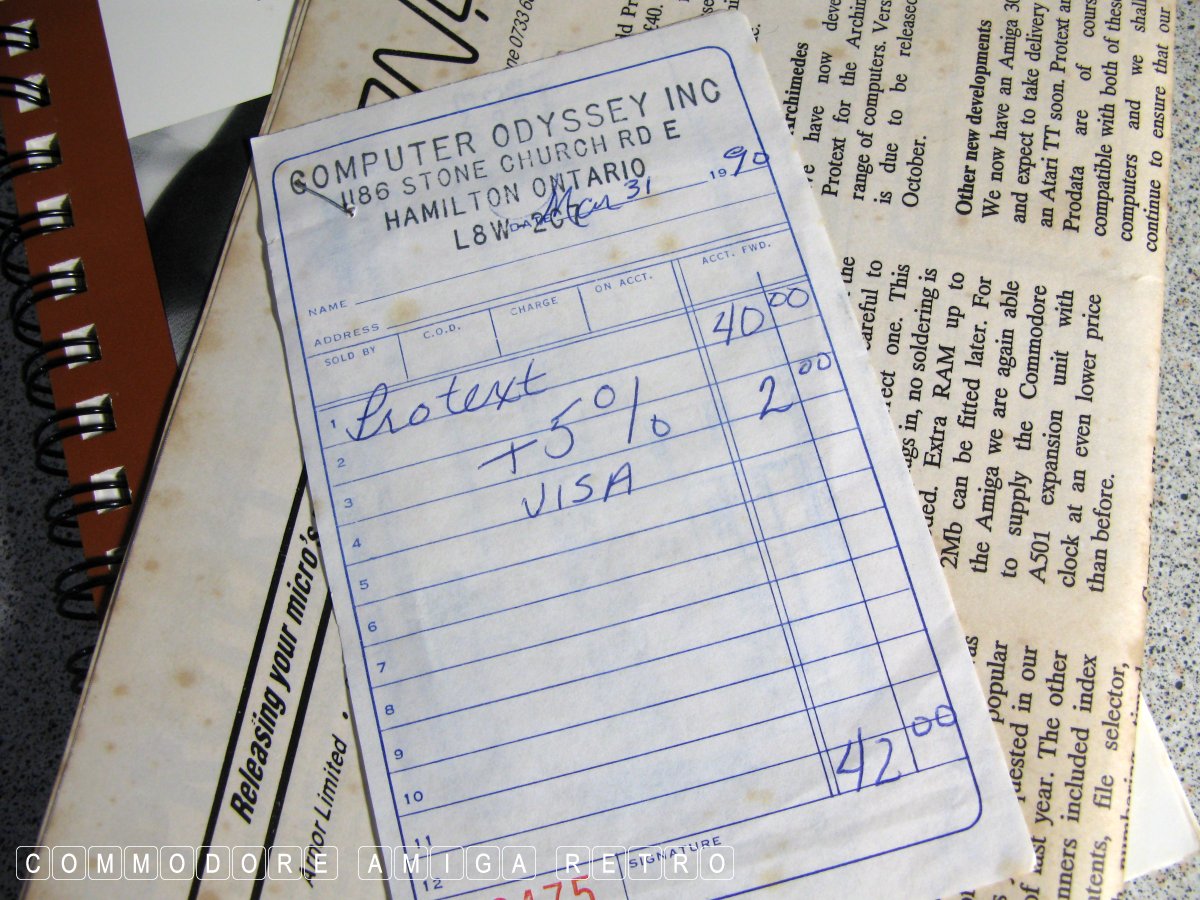 COMPUTER ODYSSEY INC
1186 STONE CHURCH RD E
HAMILTON ONTARIO
L8W
DATE Mar 31 1990
NAME
ADDRESS
SOLD BY
C.O.D.
CHARGE
ON ACCT.
ACCT. FWD.
1 Protext 40 00
2 +5% 2 00
3 VISA
4
5
6
7
8
9
10 42 00
11
12
SIGNATURE
475
Releasing your micro's
Arnor Limited
ne 0733 6
£40.
Archimedes
have now
Protext for the
range of computers.
is due to be released
October.
Other new developments
We now have an Amiga
and expect to take delivery
an Atari TT soon. Protext
Prodata are of
compatible with both of these
computers and we shall
continue to ensure that our
the
careful to
one. This
in, no soldering is
Extra RAM up to
2Mb can be fitted later. For
the Amiga we are again able
to supply the Commodore
A501 expansion unit with
clock at an even lower price
than before.
popular
in our
of last year. The other
included index
file selector,
COMMODORE AMIGA RETRO